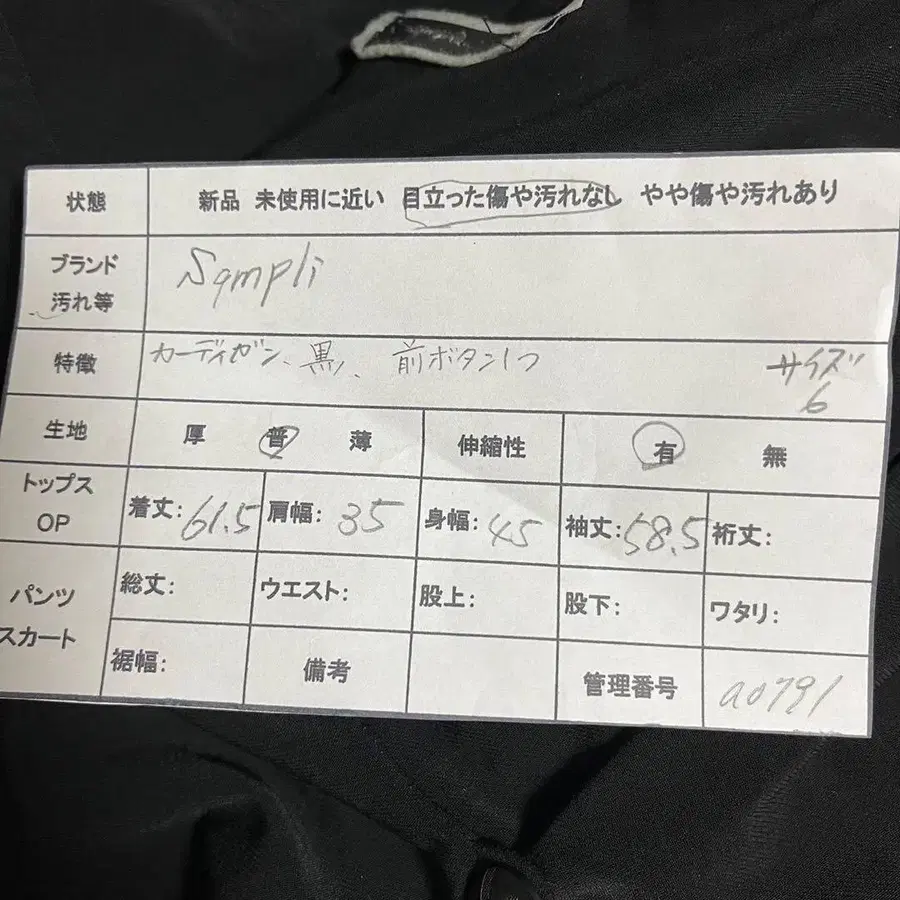 状態 新品 未使用に近い 目立った傷や汚れなし やや傷や汚れあり
ブランド
汚れ等
Sqmpli
特徴 カーディガン、黒、前ボタン1つ サイズ
6
生地 厚 普 薄 伸縮性 有 無
トップス
OP
着丈: 61.5 肩幅: 35 身幅: 45 袖丈: 58.5 裄丈:
パンツ
スカート
総丈: ウエスト: 股上: 股下: ワタリ:
裾幅: 備考 管理番号 a0791